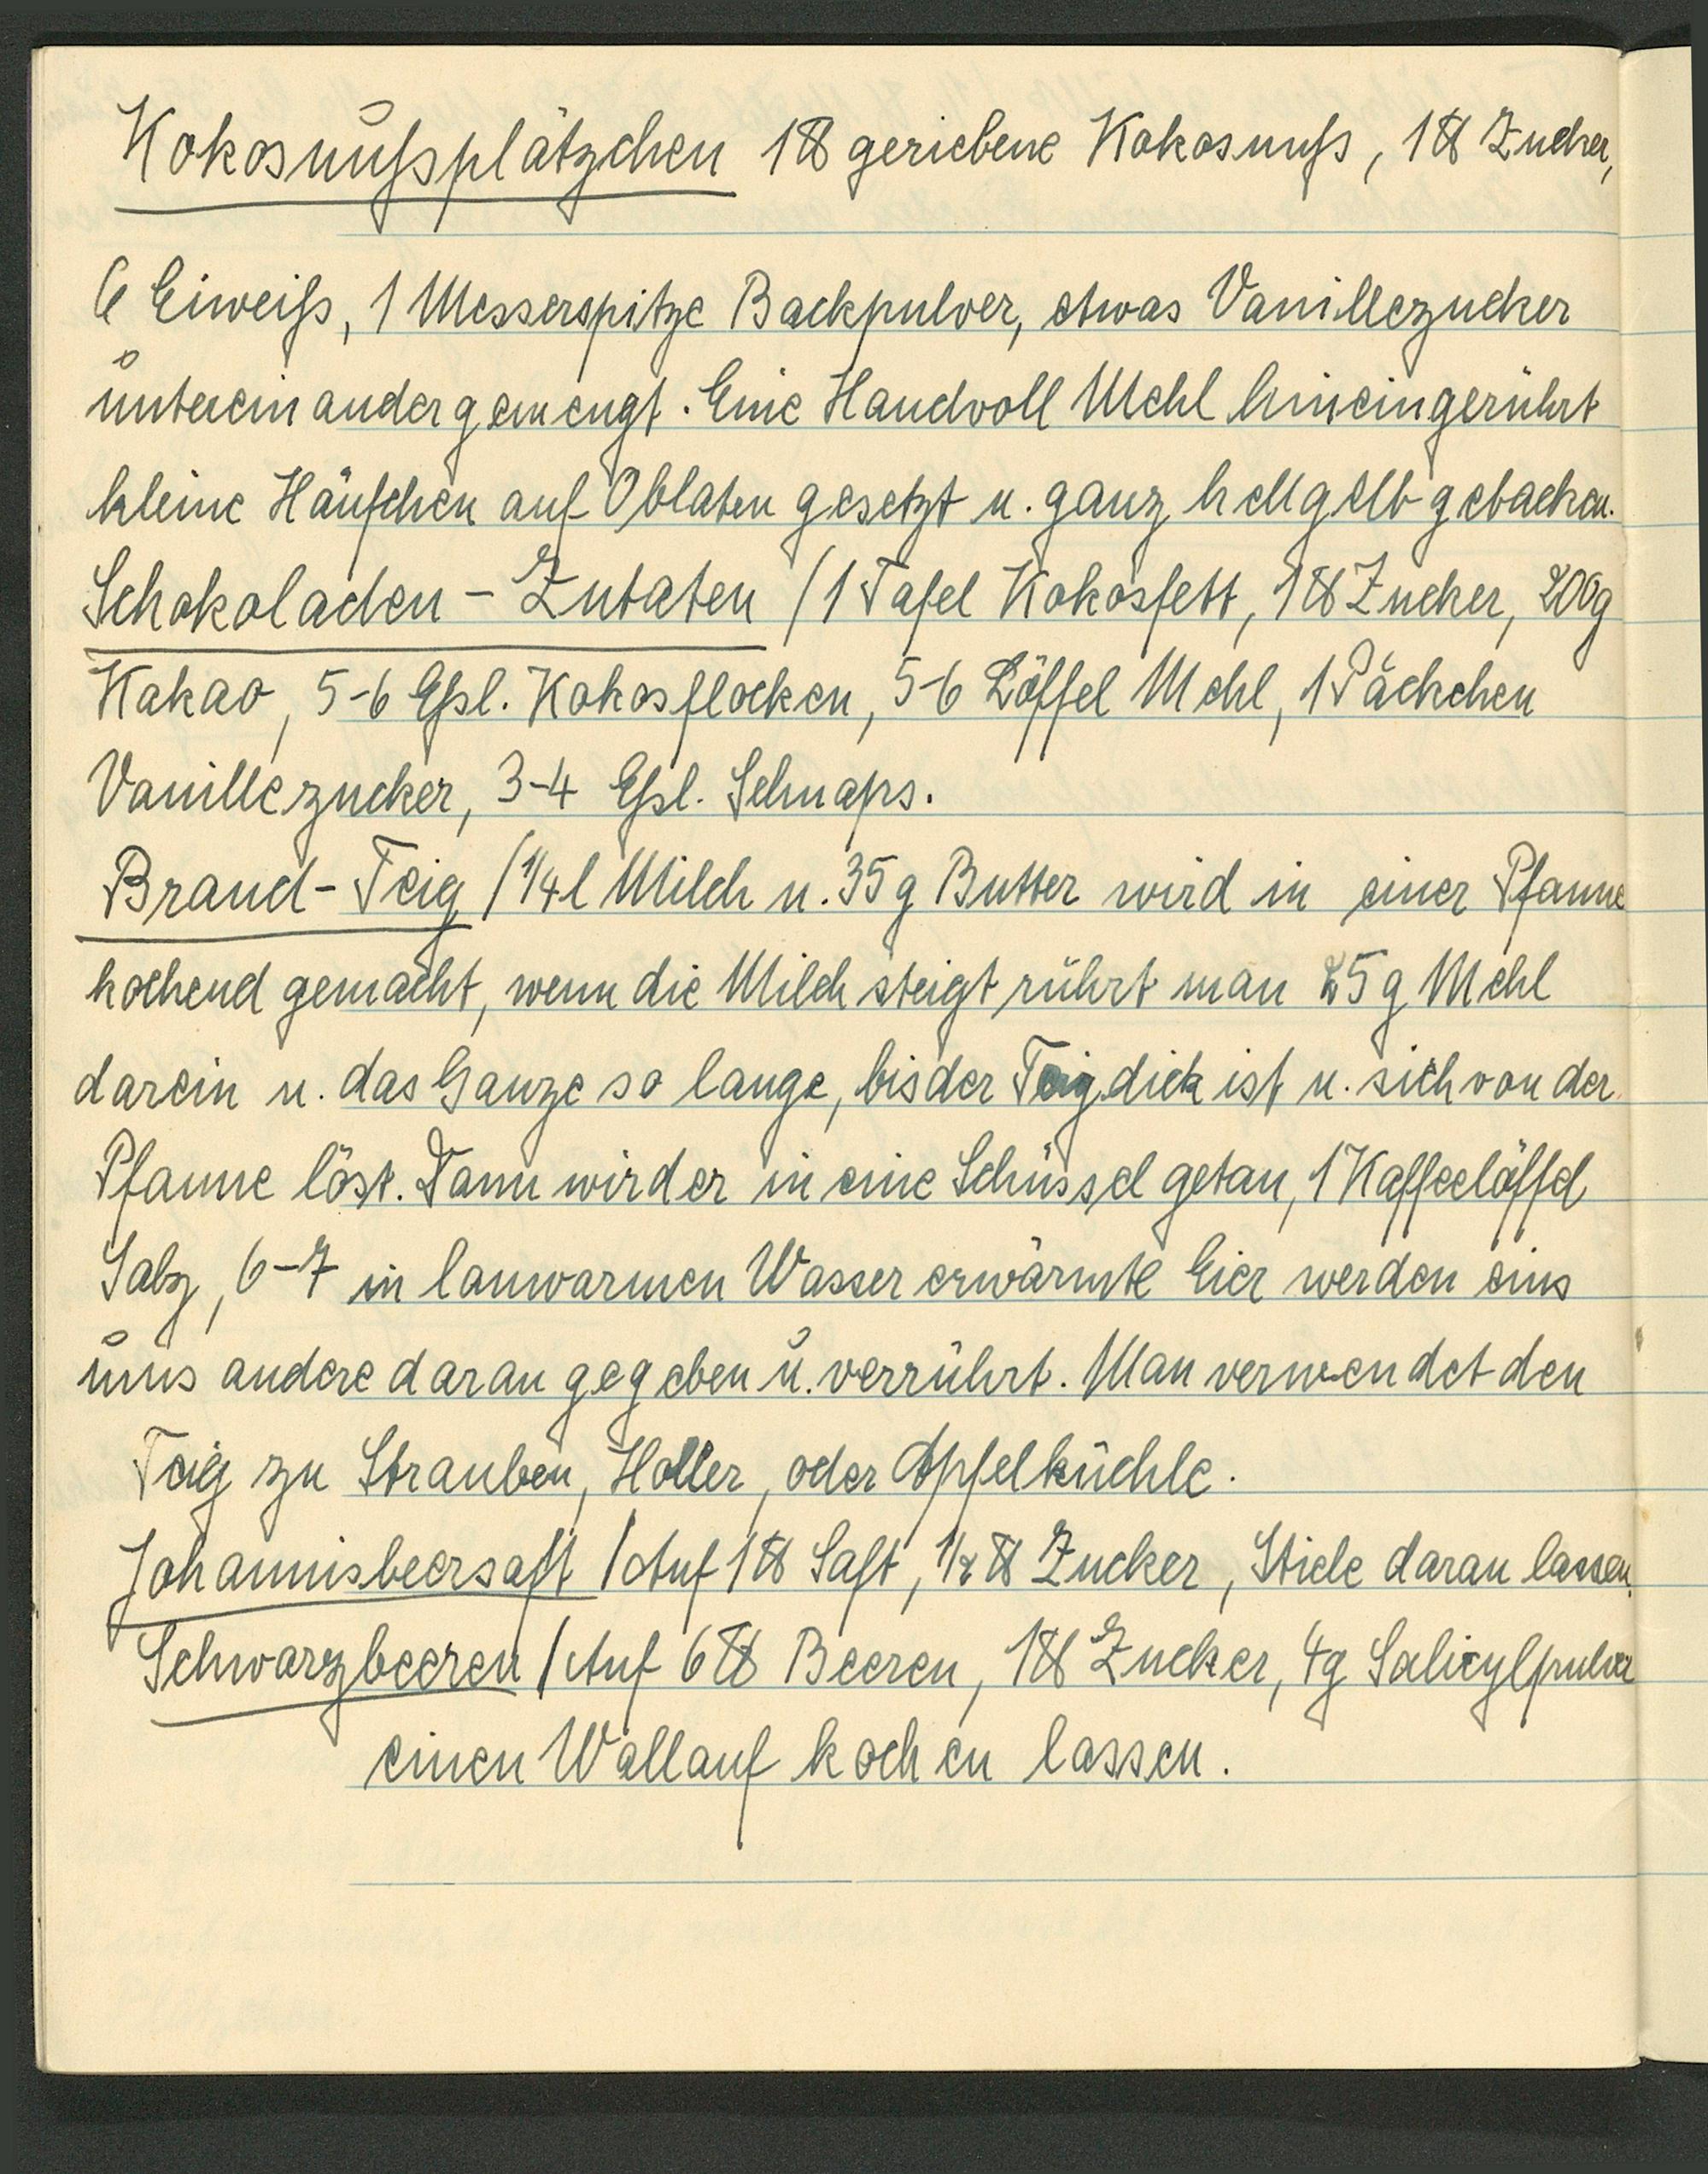 Kokosnußplätzchen 1 ℔ geriebene Kokosnuß, 1 ℔ Zucker,
6 Eiweiß, 1 Messerspitze Backpulver, etwas Vanillezucker
untereinander gemengt. Eine Handvoll Mehl hineingerührt
kleine Häufchen auf Oblaten gesetzt u. ganz hellgelb gebacken.
Schokoladen - Zutaten / 1 Tafel Kokosfett, 1 ℔ Zucker, 200g
Kakao, 5-6 Eßl. Kokosflocken, 5-6 Löffel Mehl, 1 Päckchen
Vanillezucker, 3-4 Eßl. Schnaps.
Brand - Teig / 1/4 l Milch u. 35 g Butter wird in einer Pfanne
kochend gemacht, wenn die Milch steigt rührt man 25 g Mehl
darein u. das Ganze so lange, bis der Teig dick ist u. sich von der
Pfanne löst. Dann wird er in eine Schüssel getan, 1 Kaffeelöffel
Salz, 6-7 in lauwarmen Wasser erwärmte Eier werden eins
ums andere daran gegeben u. verrührt. Man verwendet den
Teig zu Strauben, Holler, oder Apfelküchle.
Johannisbeersaft / Auf 1 ℔ Saft, 1/2 ℔ Zucker, Stiele daran lassen.
Schwarzbeeren / Auf 6 ℔ Beeren, 1 ℔ Zucker, 4g Salicylpulver
einen Wallauf kochen lassen.